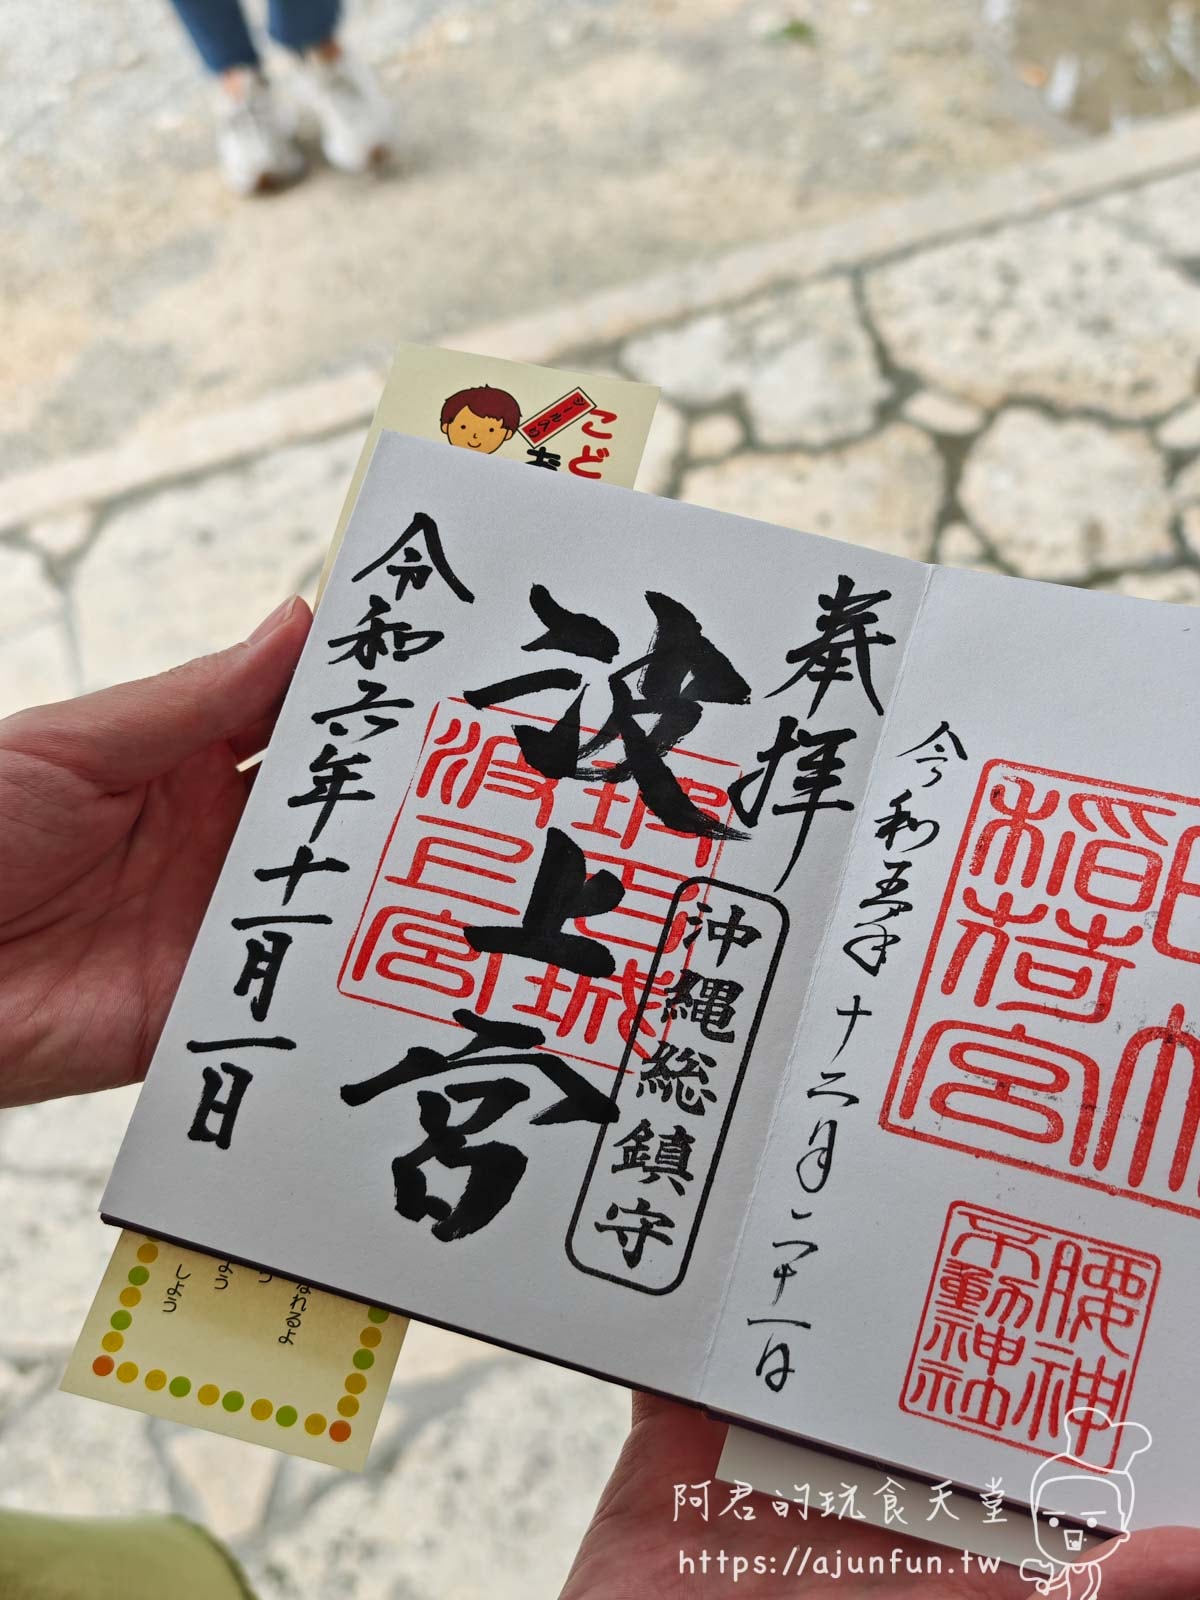 こど
お
奉拝
波上宮
沖縄総鎮守
令和六年十一月一日
波上宮
稲荷宮
令和五年十二月二十一日
腰神
不動神社
なれるよ
しょう
阿君的玩食天堂
https://ajunfun.tw